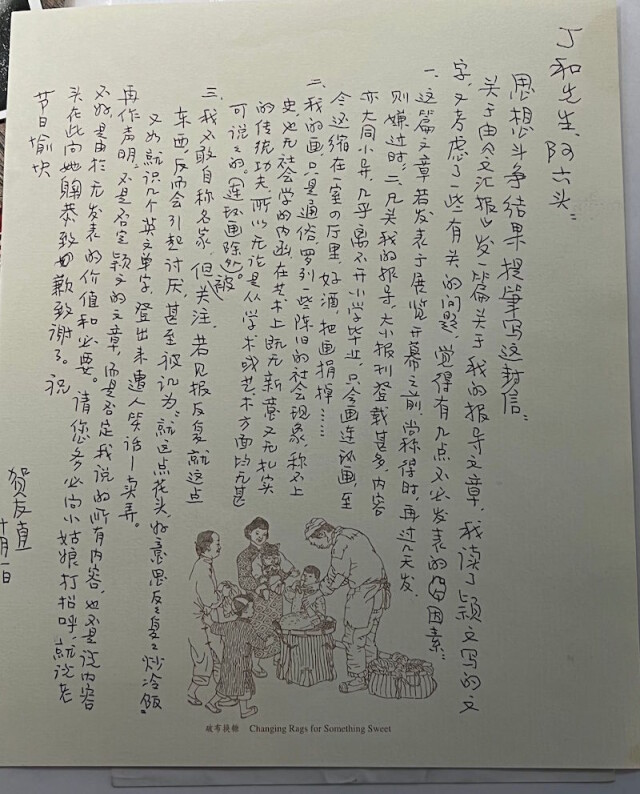 丁和先生、阿六头：
思想斗争结果提笔写这封信：
关于由《文汇报》发一篇关于我的报导文章，我读了颖文写的文
字，又考虑了一些有关的问题，觉得有几点不必发表的因素：
一、这篇文章若发表于展览开幕之前，尚称得时，再过几天发，
则嫌过时；二、凡关我的报导，大小报刊登载甚多，内容
亦大同小异，几乎离不开小学毕业，只会画连环画，至
今还缩在一室四厅里，好酒，把画捐掉……
二、我的画，只是通俗，罗列一些陈旧的社会现象，称不上
史，也无社会学的内涵，在艺术上既无新意又无扎实
的传统功夫，所以无论是从学术或艺术方面均无甚
可说之的。（连环画除外）
三、我不敢自称名家，但被关注，若见报反复就这点
东西，反而会引起讨厌，甚至被讥为：就这点花头，好意思反反复复炒冷饭。
又如就识几个英文单字，登出来遭人笑话—卖弄。
再作声明，不是否定颖文的文章，而是否定我说的所有内容，也不是说内容
不好，是由于无发表的价值和必要。请您务必向小姑娘打招呼，就说老
头在此向她鞠恭致歉致谢了。祝
节日愉快
贺友直
十月一日
破布换糖 Changing Rags for Something Sweet